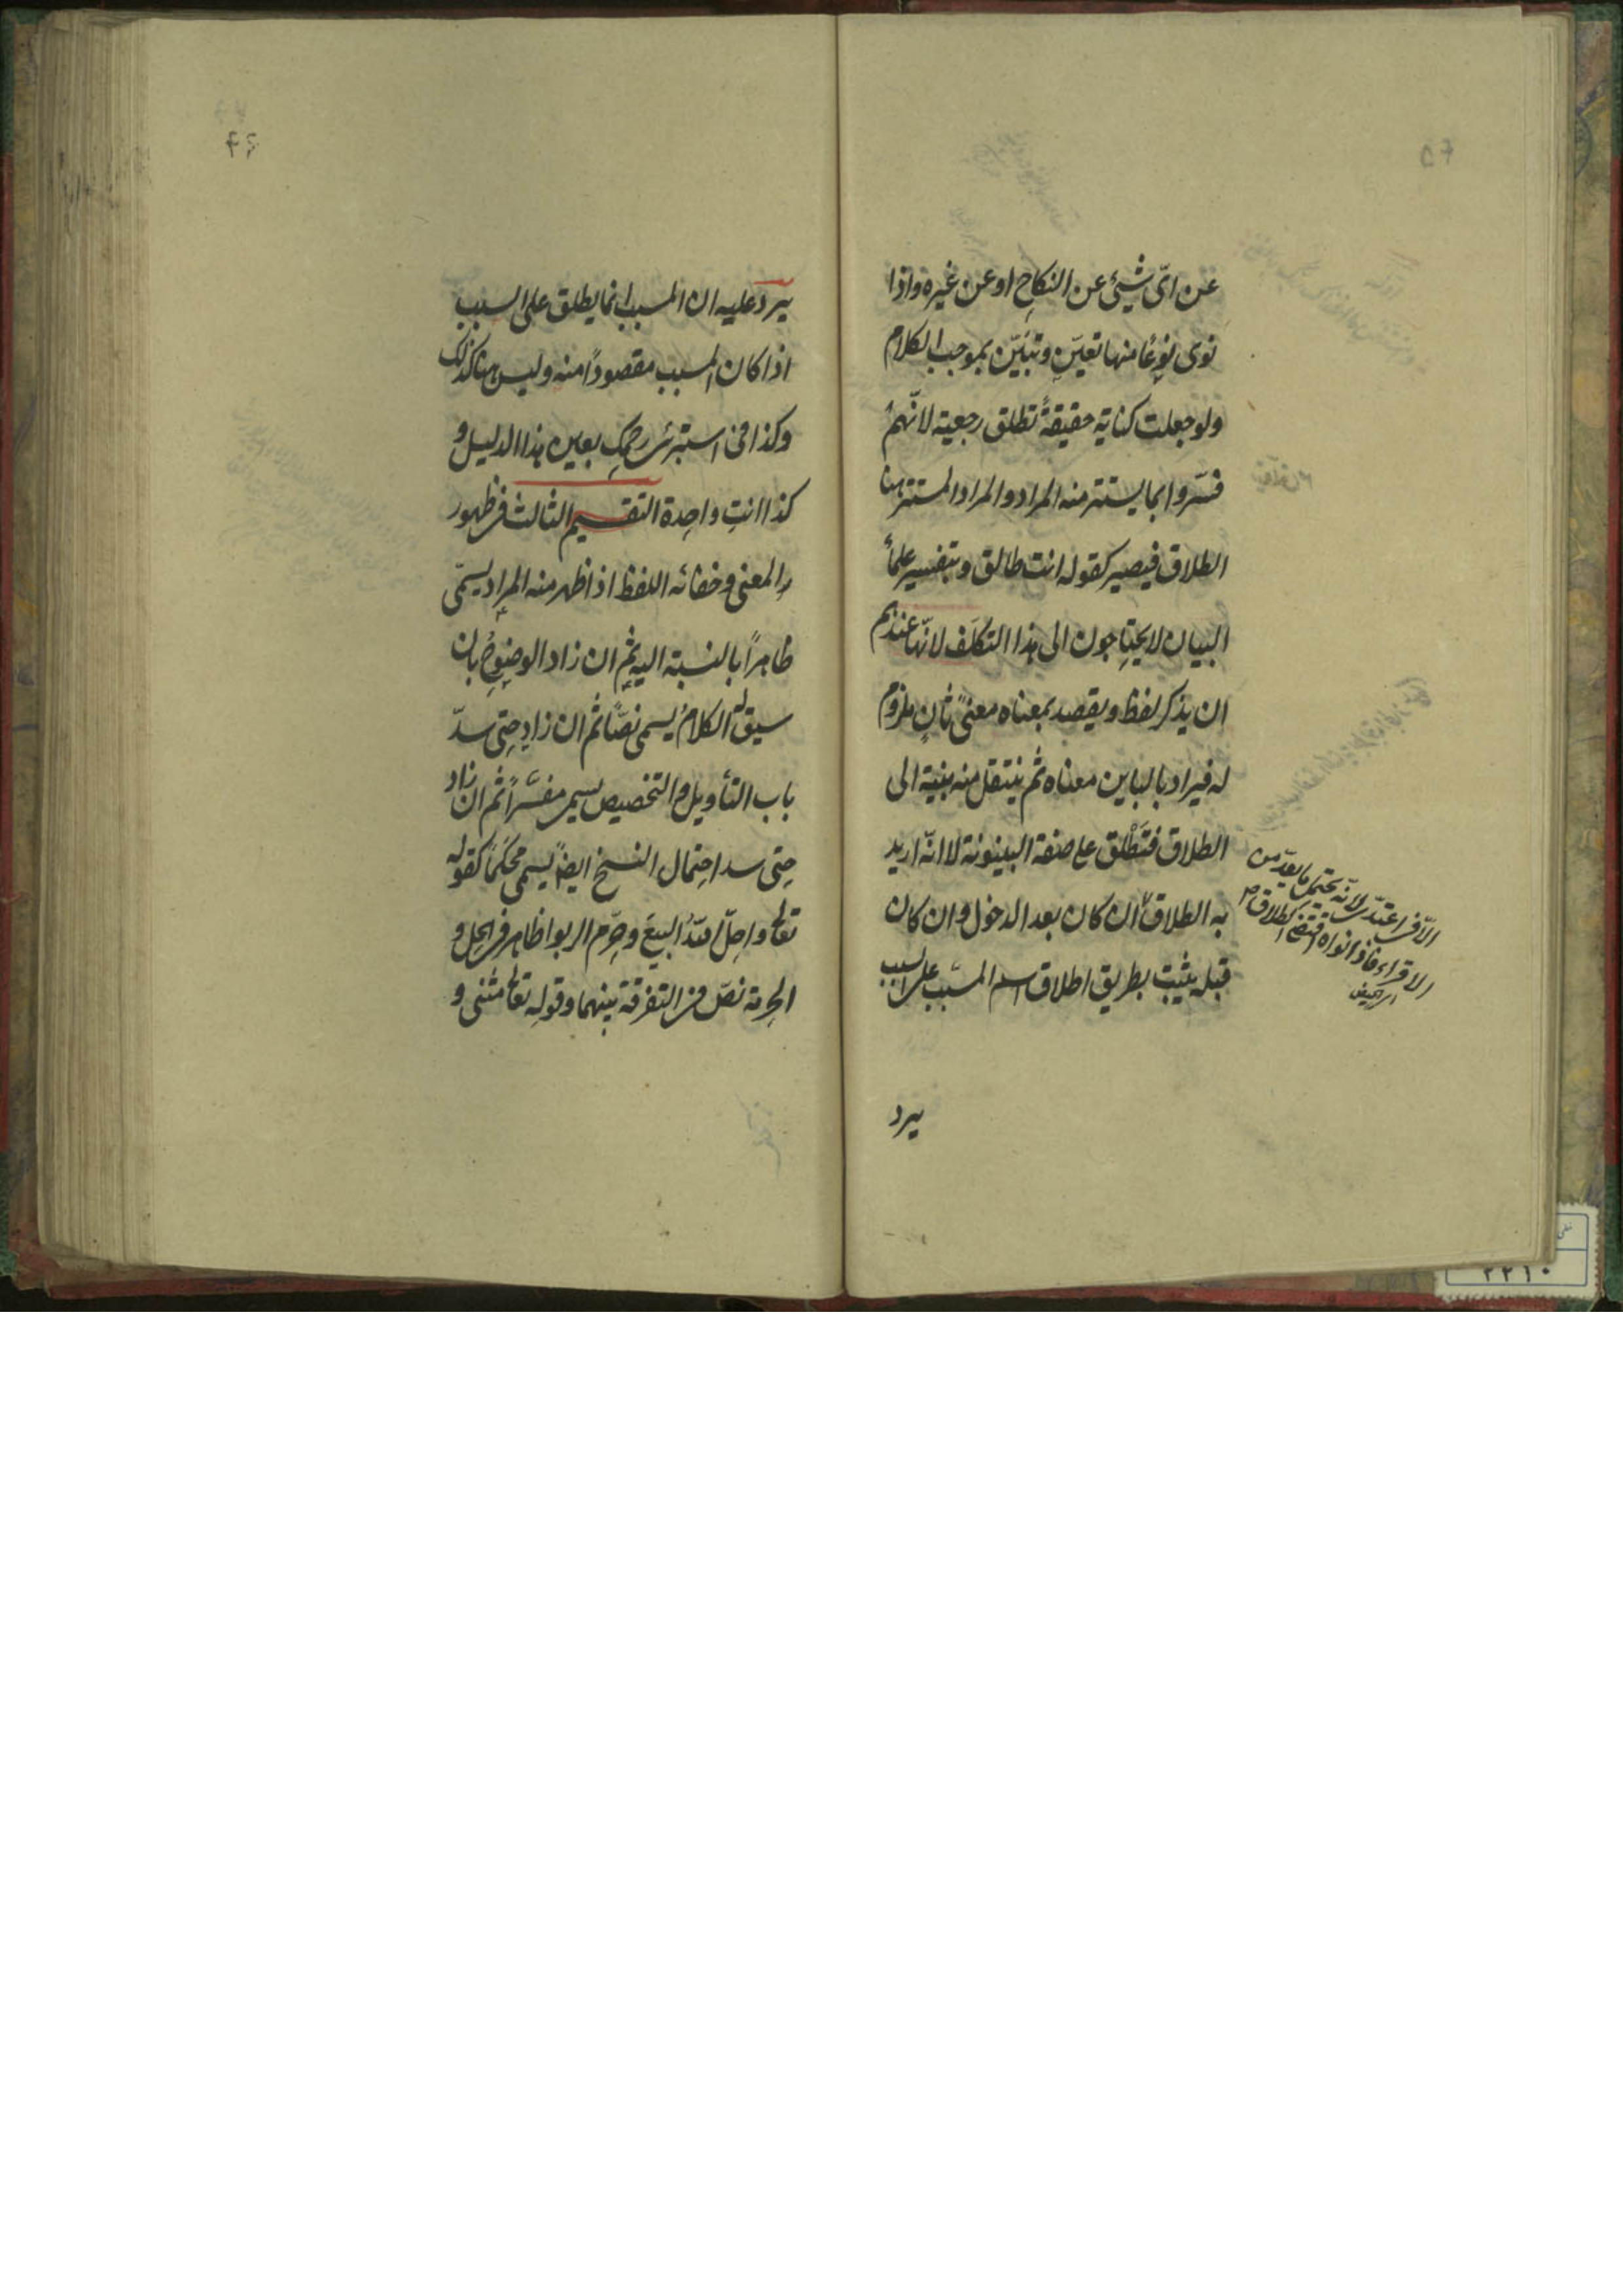 عن اىّ شيئ عن النكاح او عن غيره واذا
نوى نوعًا منها تعيّن وتبيّن بموجب الكلام
ولو جعلت كناية حقيقةً تطلق رجعية لانّهم
فسّروا بما يستتر منه المراد والمراد المستتر هنا
الطلاق فيصير كقوله انت طالق وبتفسير علماء
البيان لا يحتاجون الى هذا التكلّف لانّها عندهم
ان يذكر لفظ ويقصد بمعناه معنىً ثانٍ ملزوم
له فيراد بالباين معناه ثم ينتقل منه بنية الى
الطلاق فتطلق على صفة البينونة لا انّه اريد
به الطلاق الا فى اعتدّى لانّه يحتمل ما يعدّ من
الاقراء فاذا نواه اقتضى الطلاق
ان كان بعد الدخول وان كان
قبله يثبت بطريق اطلاق اسم المسبّب على السبب
يرد
٤٥
٤٦
يرد عليه ان المسبب انما يطلق على السبب
اذا كان المسبب مقصودًا منه وليس هنا كذلك
وكذا فى استبرئى رحمك بعين هذا الدليل و
كذا انتِ واحدة التقسيم الثالث فى ظهور
المعنى وخفائه اللفظ اذا ظهر منه المراد يسمّى
ظاهرًا بالنسبة اليه ثم ان زاد الوضوح بان
سيق له الكلام يسمى نصًّا ثم ان زاد حتى سدّ
باب التأويل والتخصيص يسمى مفسّرًا ثم ان زاد
حتى سد احتمال النسخ ايضًا يسمى محكمًا كقوله
تعالى واحلّ الله البيعَ وحرّم الربوا ظاهر فى الحل و
الحرمة نصّ فى التفرقة بينهما وقوله تعالى مثنى و
٢٢١٠